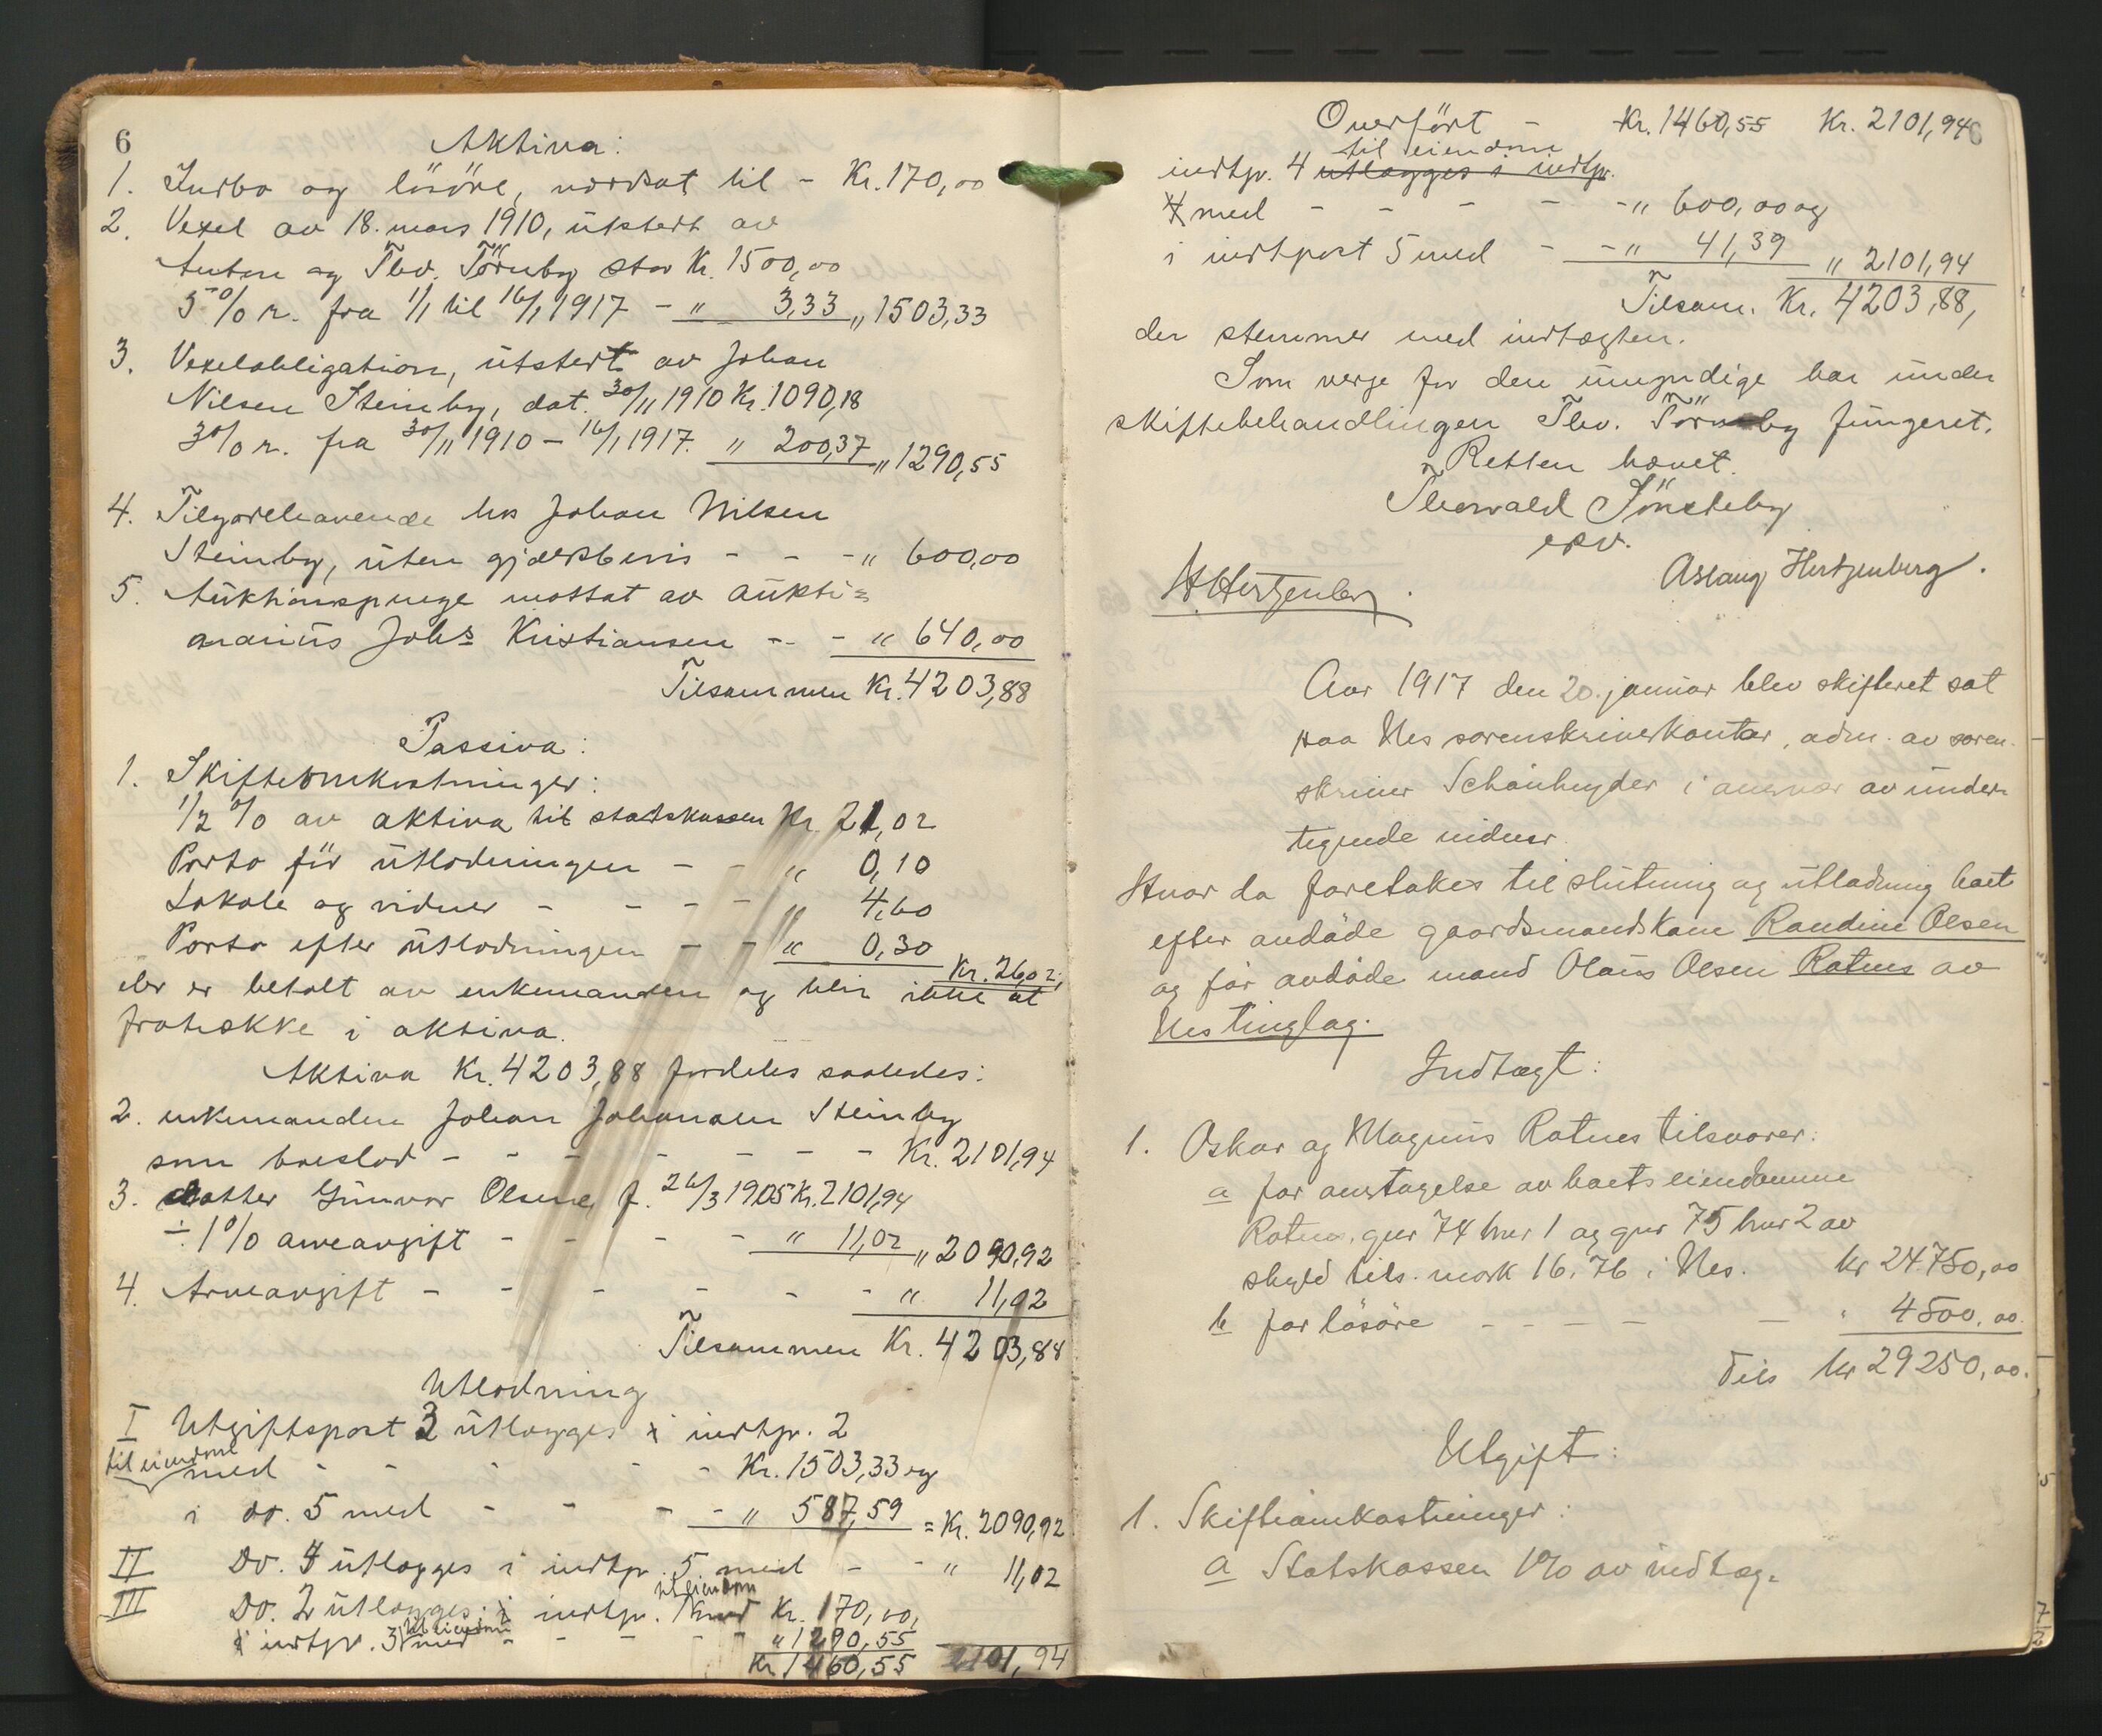 6
Aktiva:
1. Indbo og lösöre, værdsat til - Kr. 170,00
2. Vexel av 18. mars 1910, utstedt av
Anton og Thv. Törnby stor Kr. 1500,00
5% r. fra 1/1 til 16/1 1917 - " 3,33 " 1503,33
3. Vexelobligation, utstedt av Johan
Nilsen Steinby, dat. 30/11 1910 Kr. 1090,18
3% r. fra 30/11 1910 - 16/1 1917. " 200,37 " 1290,55
4. Tilgodehavende hos Johan Nilsen
Steinby, uten gjældsbevis - - - " 600,00
5. Auktionspenge mottat av aukti=
onarius Johs Kristiansen - - - " 640,00
Tilsammen Kr. 4203,88
Passiva:
1. Skifteomkostninger:
1/2 % av aktiva til statskassen Kr. 21,02
Porto för utlodningen - - " 0,10
Lokale og vidner - - - - " 4,60
Porto efter utlodningen - - " 0,30
Kr. 26,02,
der er betalt av enkemanden og blir ikke at
fratrække i aktiva.
Aktiva Kr. 4203,88 fordeles saaledes:
2. enkemanden Johan Johansen Steinby
som boeslod - - - - - - - Kr. 2101,94
3. datter Gunvor Olsen, f. 26/3 1905 Kr. 2101,94
÷ 1% arveavgift - - - - " 11,02 " 2090,92
4. Arveavgift - - - - - - " 11,02
Tilsammen Kr. 4203,88
Utlodning
I Utgiftspost 3 utlægges i indtp. 2
til eiendom
med - - - - - Kr. 1503,33 og
i do. 5 med - - - - " 587,59 = Kr. 2090,92
II Do. 4 utlægges i indtp. 5 med - - " 11,02
til eiendom
III Do. 2 utlægges i indtp. 1 med Kr. 170,00,
til eiendom
i indtp. 3 med - - - - - " 1290,55
Kr. 1460,55 2101,94
6
Overfört - Kr. 1460,55 Kr. 2101,94
til eiendom
indtp. 4 utlægges i indtp.
4 med - - - - - " 600,00 og
i indtpost 5 med - - " 41,39 " 2101,94
Tilsam. Kr. 4203,88,
der stemmer med indtægten.
Som verge for den umyndige har under
skiftebehandlingen Thv. Törnby fungeret.
Retten hævet.
Thorvald Sönsteby
epv.
Aslaug Hertzenberg.
H. Hertzenberg.
Aar 1917 den 20. januar blev skifteret sat
paa Nes sorenskriverkontor, adm. av soren-
skriver Schönheyder i nærvær av under-
tegnede vidner.
Hvor da foretokes til slutning og utlodning boet
efter avdöde gaardmandskone Randine Olsen
og för avdöde mand Olaus Olsen Rotnes av
Nes tinglag.
Indtægt:
1. Oskar og Magnus Rotnes tilsvarer:
a for overtagelse av boets eiendomme
Rotnes, gnr 74 bnr 1 og gnr 75 bnr 2 av
skyld tils. mark 16.76 i Nes. kr 24750,00
b for lösöre - - - - - " 4500,00.
Tils kr 29250,00.
Utgift:
1. Skifteomkostninger:
a Statskassen 1% av indtæg-